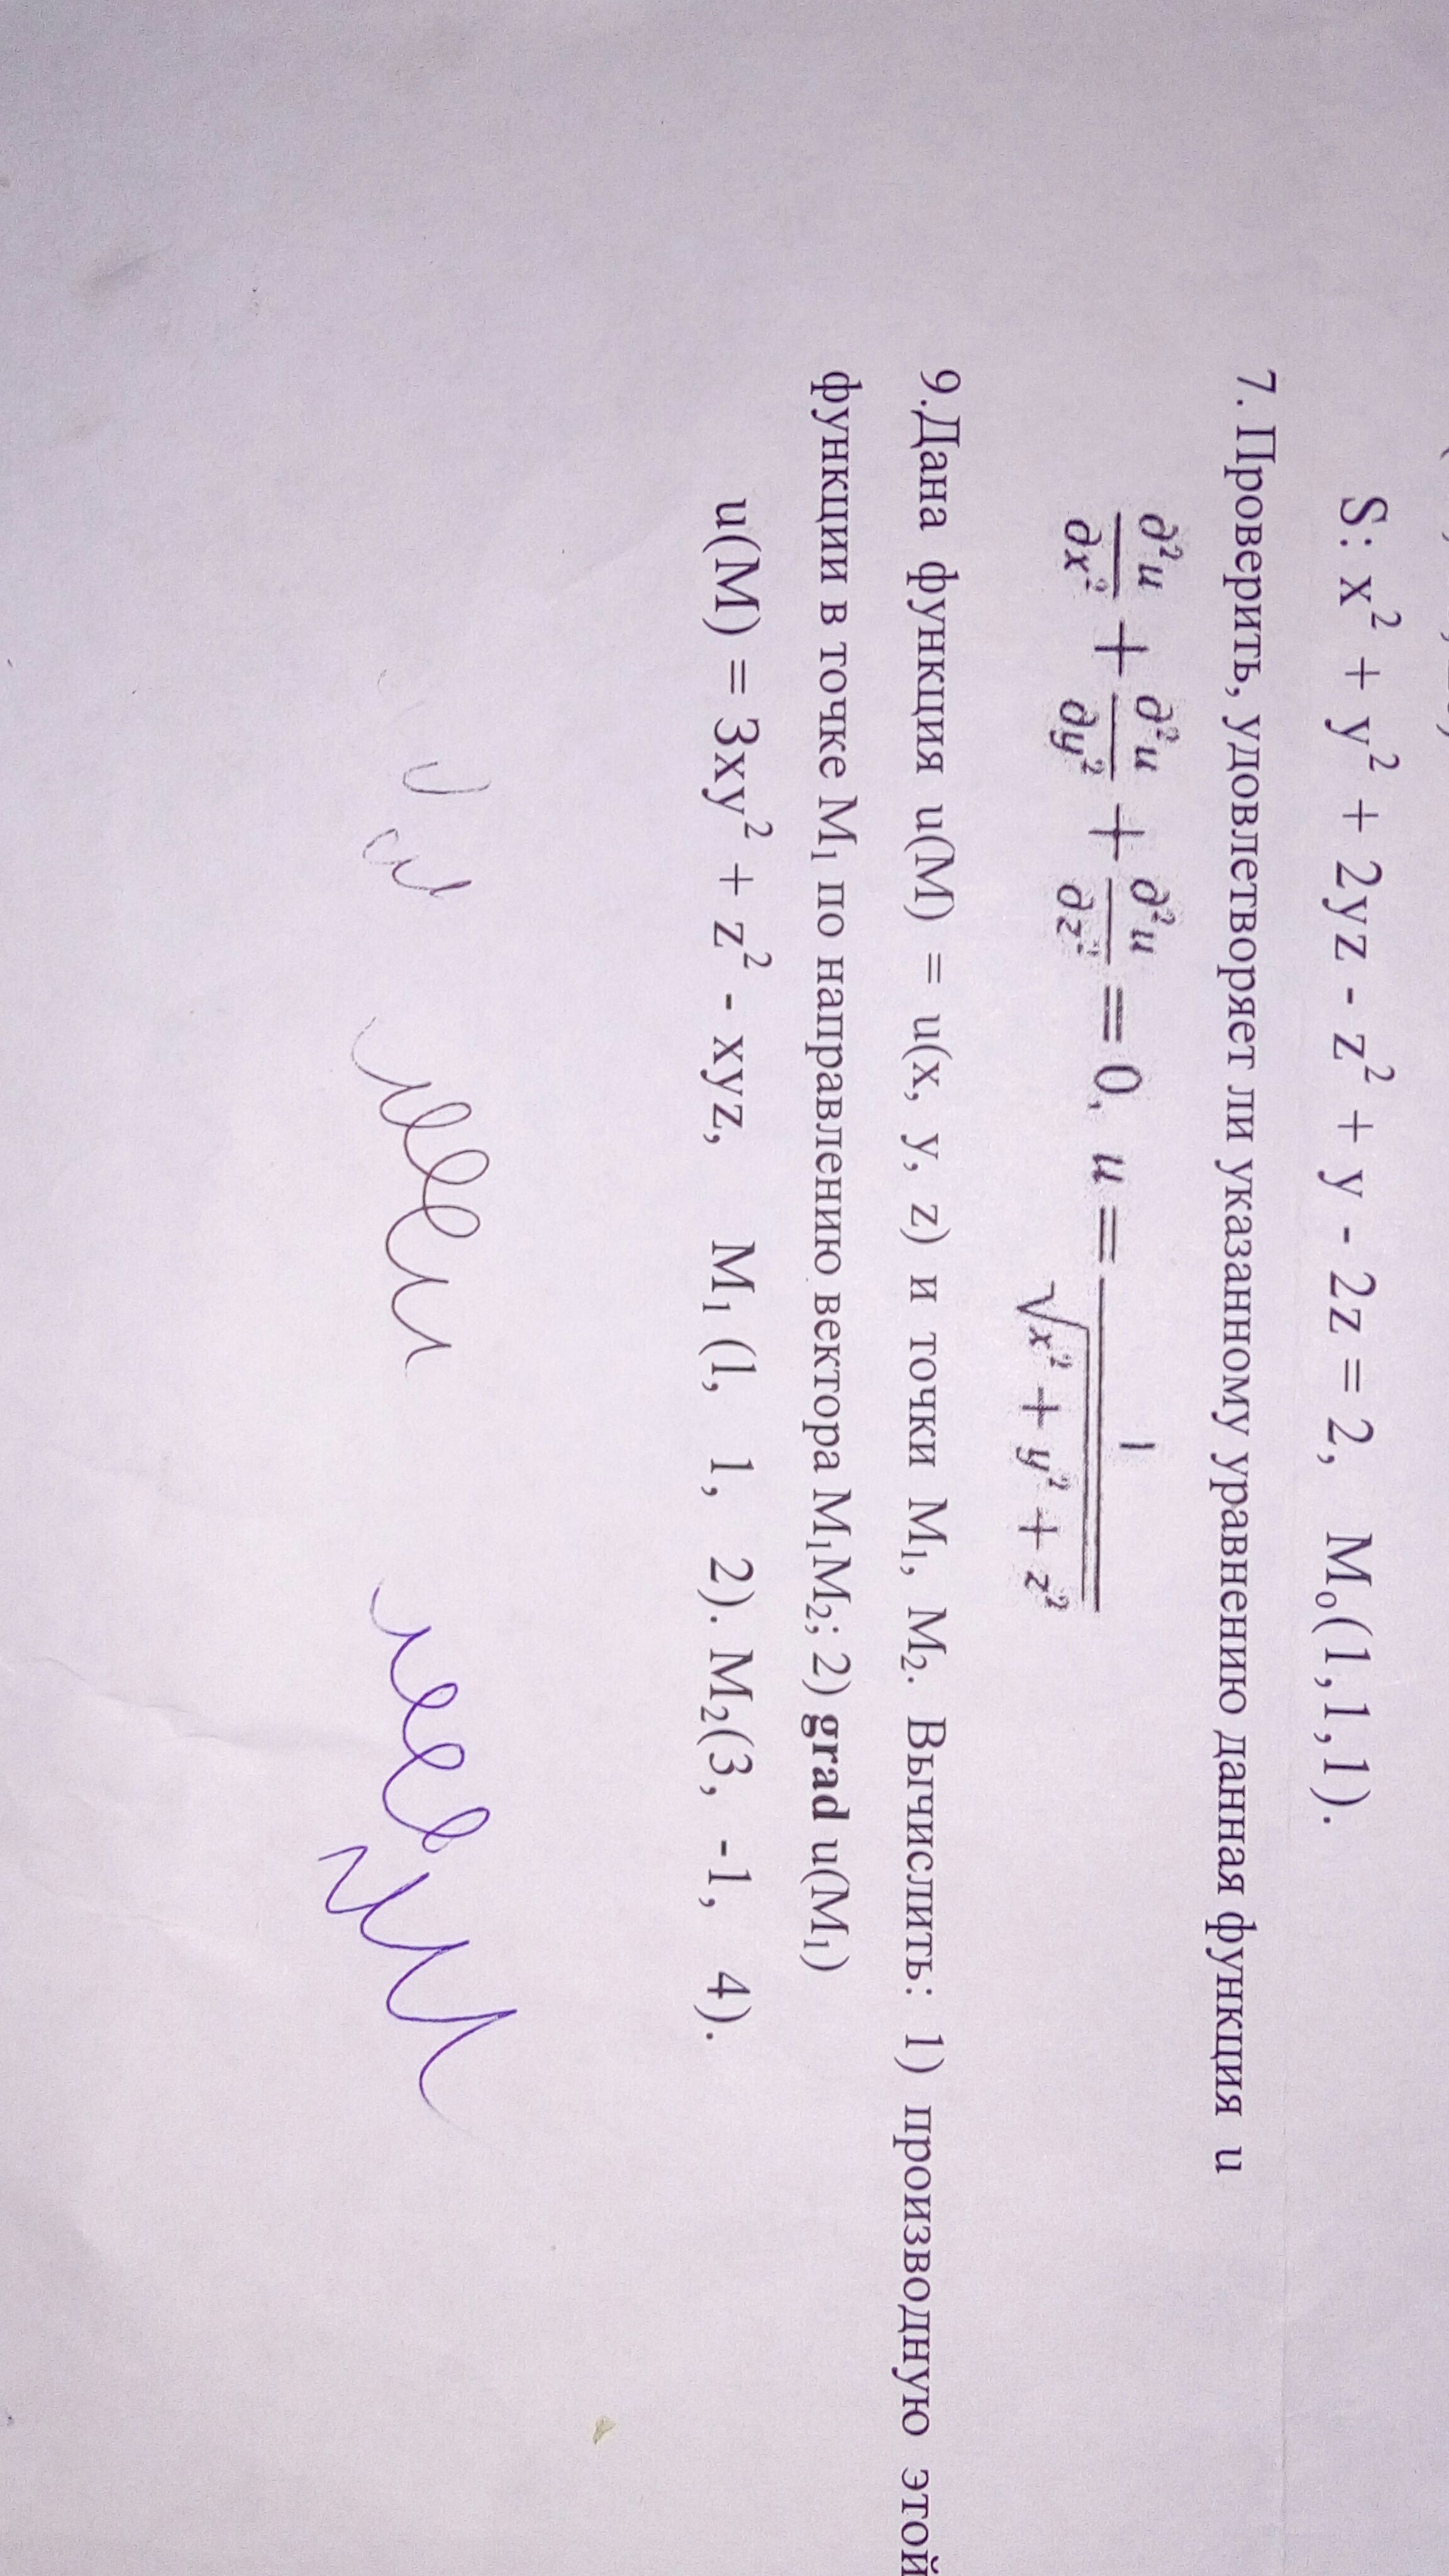 S: x² + y² + 2yz - z² + y - 2z = 2, M₀(1,1,1).
7. Проверить, удовлетворяет ли указанному уравнению данная функция u
∂²u/∂x² + ∂²u/∂y² + ∂²u/∂z² = 0, u = 1/√(x² + y² + z²)
9.Дана функция u(M) = u(x, y, z) и точки M₁, M₂. Вычислить: 1) производную этой
функции в точке M₁ по направлению вектора M₁M₂; 2) grad u(M₁)
u(M) = 3xy² + z² - xyz, M₁ (1, 1, 2). M₂(3, -1, 4).